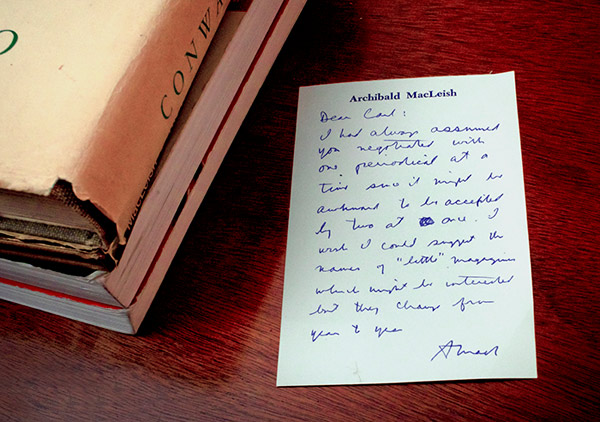 CONWA
Archibald MacLeish
Dear Carl:
I had always assumed
you negotiated with
one periodical at a
time since it might be
awkward to be accepted
by two at once. I
wish I could suggest the
names of "little" magazines
which might be interested
but they change from
year to year
AMacL